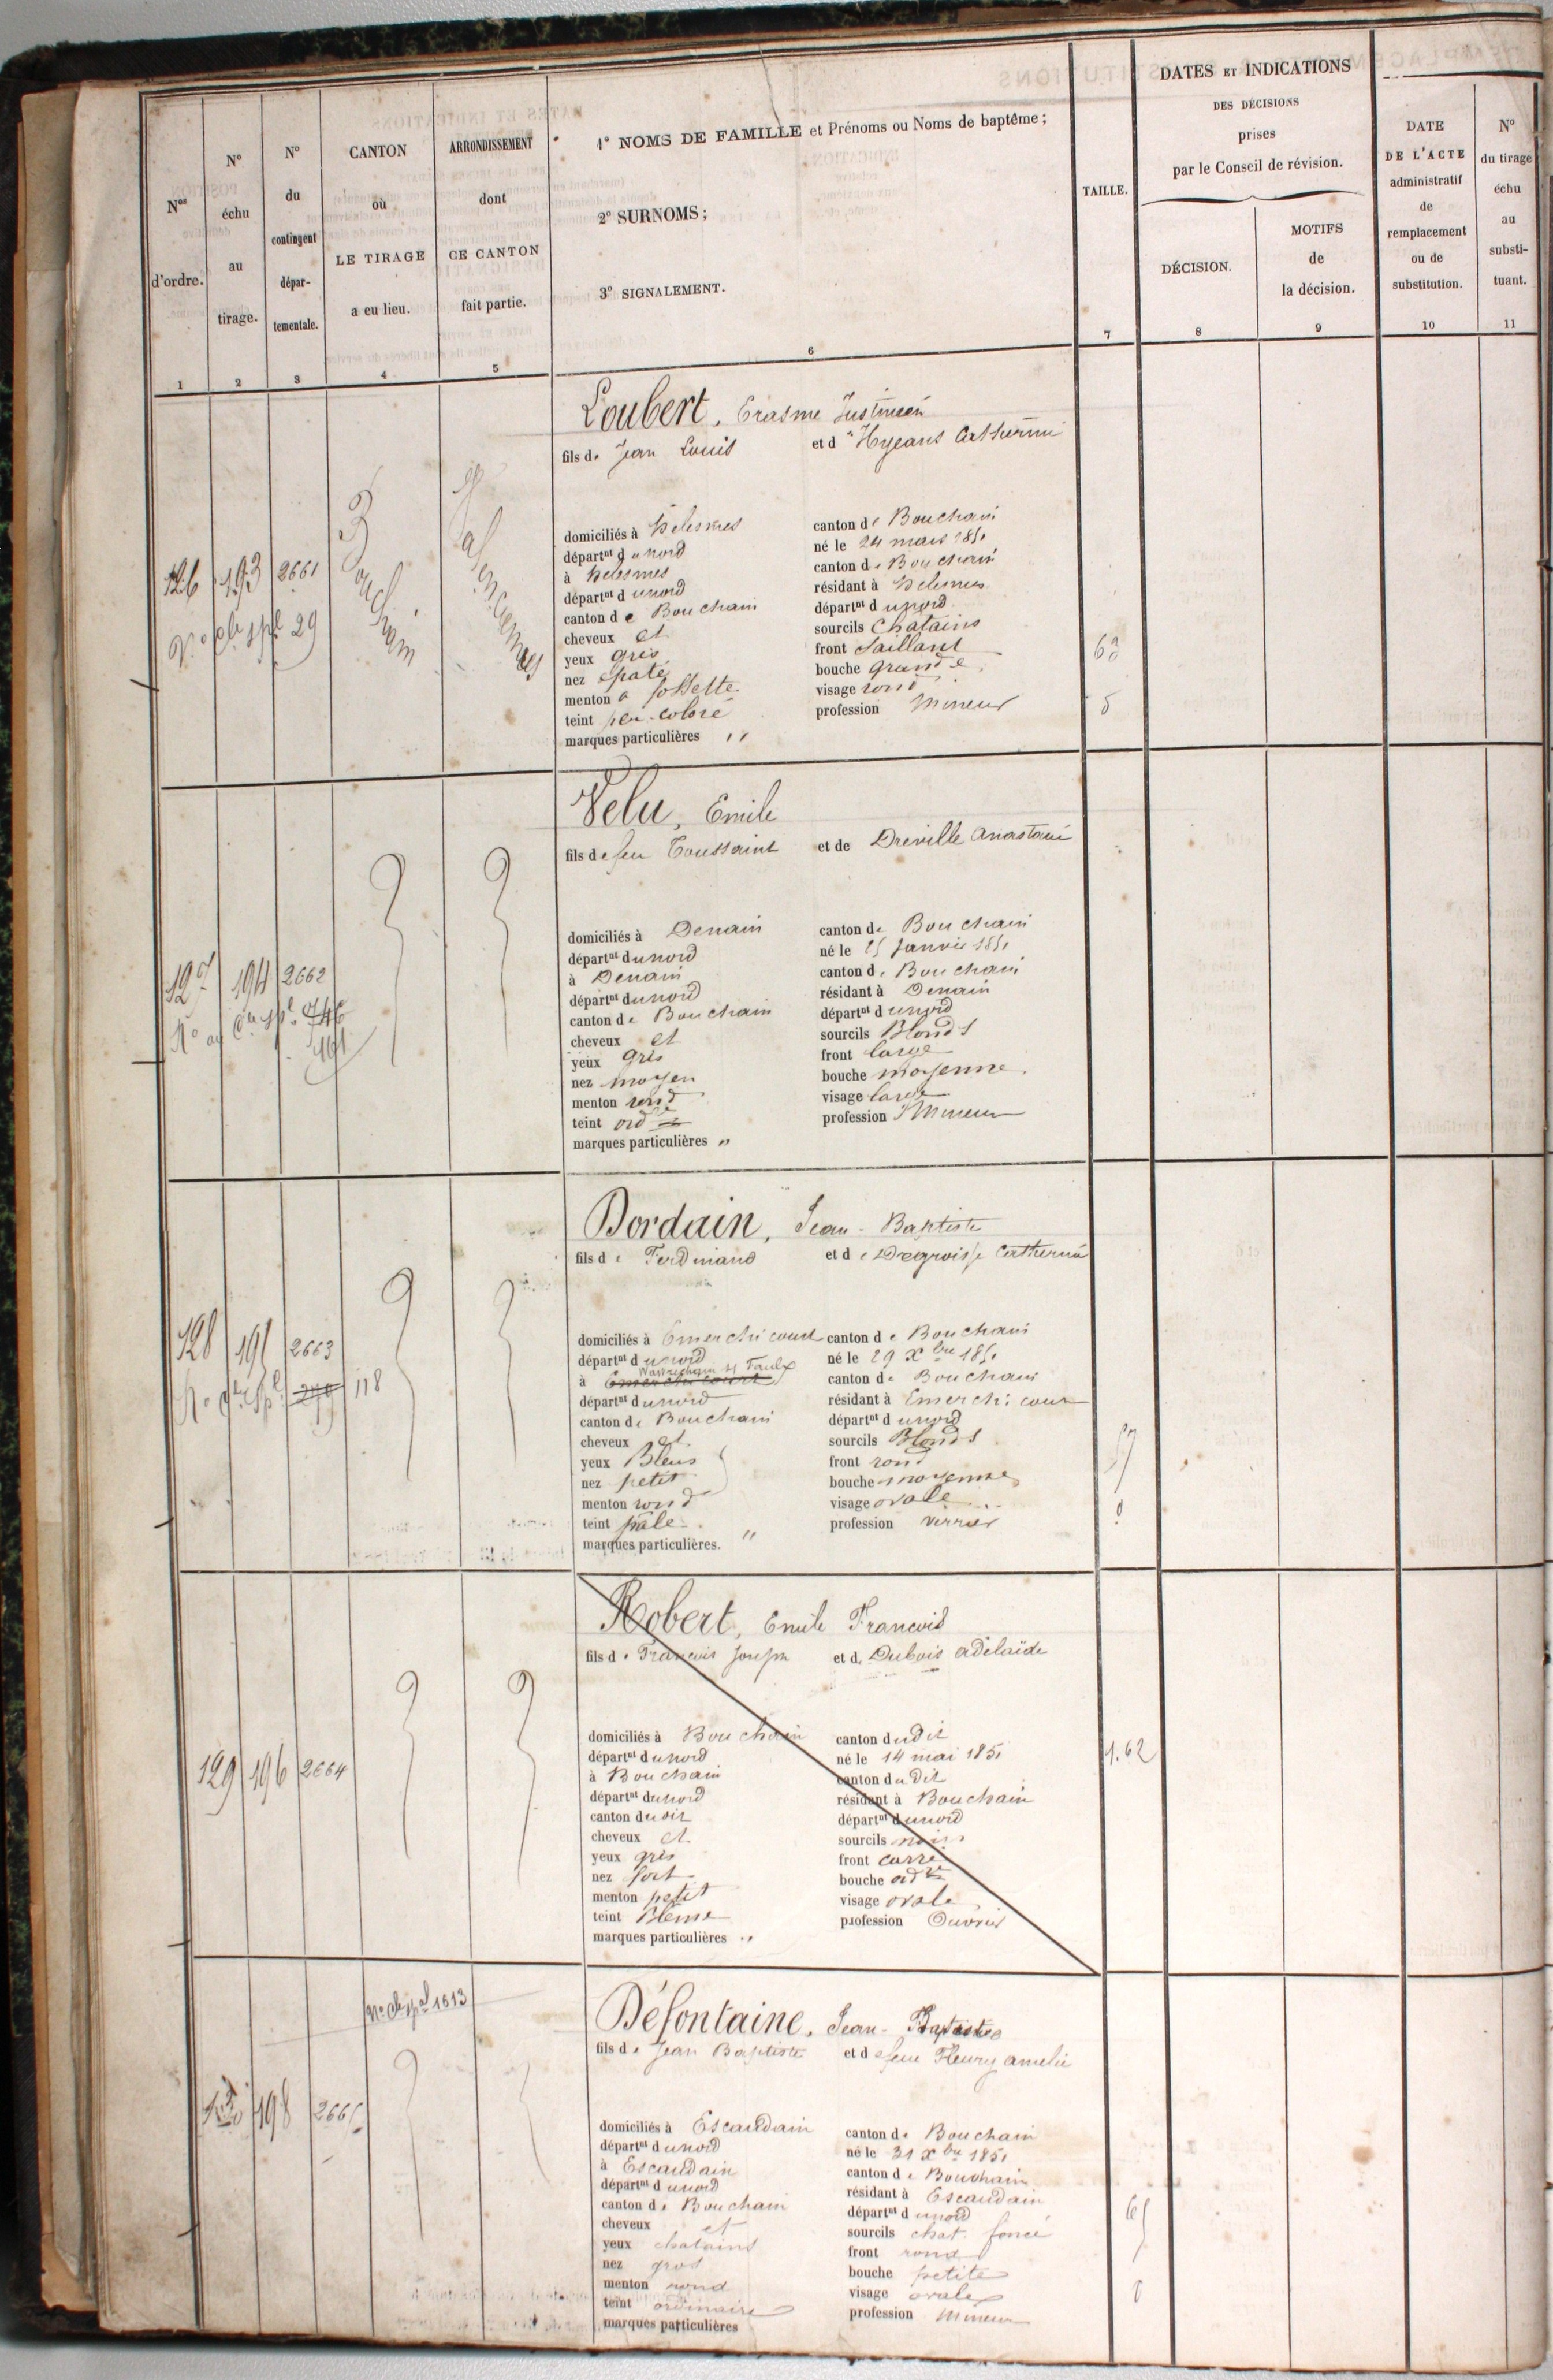 Nos d'ordre.
N° échu au tirage.
N° du contingent dépar- tementale.
CANTON où LE TIRAGE a eu lieu.
ARRONDISSEMENT dont CE CANTON fait partie.
1° NOMS DE FAMILLE et Prénoms ou Noms de baptême ;
2° SURNOMS ;
3° SIGNALEMENT.
TAILLE.
DATES ET INDICATIONS
DES DÉCISIONS
prises
par le Conseil de révision.
DÉCISION.
MOTIFS de la décision.
DATE DE L'ACTE administratif de remplacement ou de substitution.
N° du tirage échu au substi- tuant.
1 2 3 4 5 6 7 8 9 10 11
Loubert, Erasme
fils de Jean Louis et de Catherine
126 193 2661 Bouchain Valenciennes
29
domiciliés à Helesmes canton de Bouchain
départnt du nord né le 24 mars 1851
à helesmes canton de Bouchain
départnt du nord résidant à Helesmes
canton de Bouchain départnt du nord
cheveux et sourcils Chatains
yeux gris front Saillant
nez epaté bouche grande
menton a fossette visage rond
teint peu coloré profession Mineur
marques particulières "
Velu, Emile
fils de feu Toussaint et de Dreville anastasie
127 194 2662
161
domiciliés à Denain canton de Bouchain
départnt du nord né le 25 Janvier 1851
à Denain canton de Bouchain
départnt du nord résidant à Denain
canton de Bouchain départnt du nord
cheveux et sourcils Blonds
yeux gris front large
nez moyen bouche moyenne
menton rond visage large
teint ord re profession Mineur
marques particulières "
Dordain, Jean-Baptiste
fils de Ferdinand et de Catherine
128 195 2663
118
domiciliés à Emerchicourt canton de Bouchain
départnt du nord né le 29 Xbre 1851
à Emerchicourt Wavrechain s/ Faulx canton de Bouchain
départnt du nord résidant à Emerchicourt
canton de Bouchain départnt du nord
cheveux et sourcils Blonds
yeux Bleus front rond
nez petit bouche moyenne
menton rond visage ovale
teint pâle profession verrier
marques particulières. "
57
Robert, Emile Francois
fils de Francois Joseph et de Dubois adelaïde
129 196 2664
domiciliés à Bouchain canton dudit
départnt du nord né le 14 mai 1851
1.62
à Bouchain canton dudit
départnt du nord résidant à Bouchain
canton dudit départnt du nord
cheveux et sourcils noirs
yeux gris front carré
nez fort bouche ord re
menton petit visage ovale
teint Blême profession Ouvrier
marques particulières "
1613
Défontaine, Jean-Baptiste
fils de Jean Baptiste et de feue Fleury amelie
198 2665
domiciliés à Escaudain canton de Bouchain
départnt du nord né le 31 Xbre 1851
à Escaudain canton de Bouchain
départnt du nord résidant à Escaudain
canton de Bouchain départnt du nord
65
cheveux et sourcils chat. foncé
yeux chatains front rond
nez gros bouche petite
menton rond visage ovale
teint ordinaire profession Mineur
marques particulières